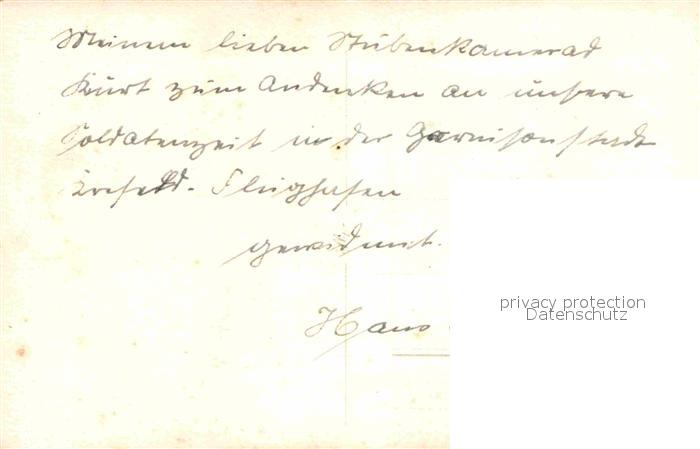 Meinem lieben Stubenkamerad
Kurt zum Andenken an unsere
Soldatenzeit in der Garnisonstadt
Krefeld. Flughafen
gewidmet.
Hans
privacy protection
Datenschutz